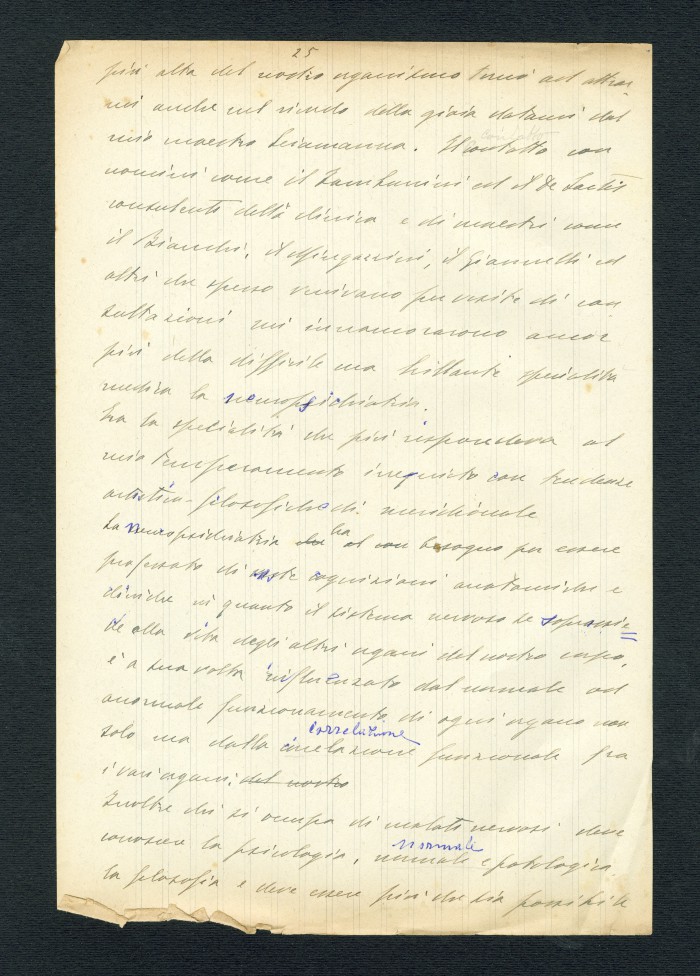 25
più alta del nostro organismo tornò ad attrar
mi anche nel ricordo della gioia datami dal
mio maestro Sciamanna. Il contatto con
contatto
uomini come il Tamburini ed il De Sanctis
consulenti della clinica e di maestri come
il Bianchi, il Mingazzini, il Giannelli ed
altri che spesso venivano per visite di con
sultazioni mi innamorarono ancor
più della difficile ma brillante specialità
medica la neuropsichiatria.
Era la specialità che più rispondeva al
mio temperamento irrequieto con tendenze
artistico-filosofiche di meridionale
La neuropsichiatria ha bisogno per essere
professato di vaste cognizioni anatomiche e
cliniche in quanto il sistema nervoso se soprassie
de alla vita degli altri organi del nostro corpo,
è a sua volta influenzato dal normale od
anormale funzionamento di ogni organo non
correlazione
solo ma dalla correlazione funzionale fra
i vari organi. del nostro
Inoltre chi si occupa di malati nervosi deve
normale
conoscere la psicologia, normale e patologica,
la filosofia e deve essere più che sia possibile